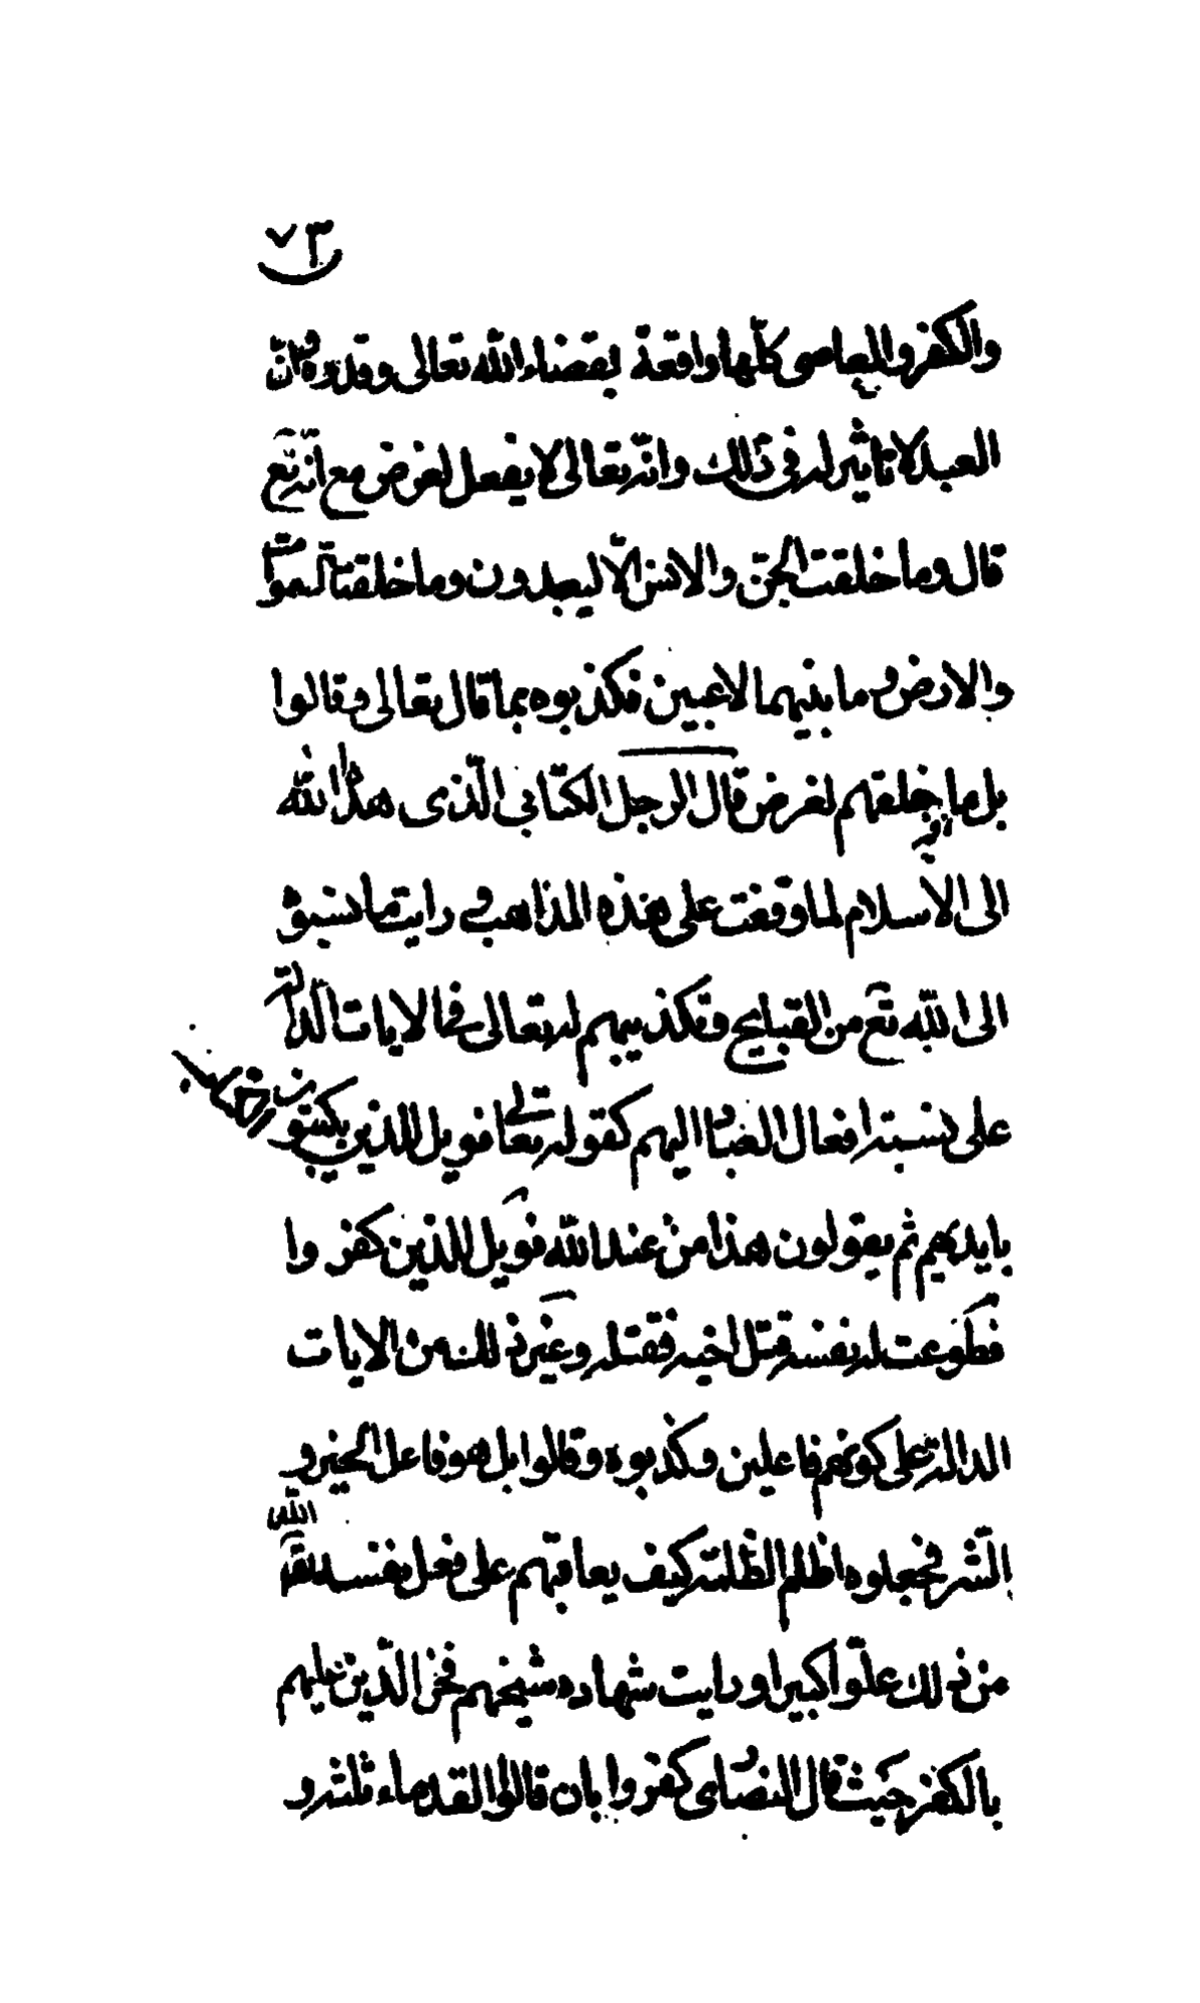 ٧٣
والكفر والمعاصى كلّها واقعة بقضاء الله تعالى وقدره وانّ
العبد لا تاثير له فى ذلك وانّه تعالى لا يفعل لغرض مع انّه تع
قال وما خلقت الجنّ والانس الّا ليعبدون وما خلقنا السّموات
والارض وما بينهما لاعبين فكذبوه بما قال تعالى وقالوا
بل ما خلقهم لغرض قال الرجل الكتابى الّذى هداه الله
الى الاسلام لما وقفت على هذه المذاهب ورايت ما نسبوه
الى الله تع من القبايح وتكذيبهم له تعالى فى الايات الدالّة
على نسبة افعال العباد اليهم كقوله تعالى فويل للذين يكتبون الكتاب
بايديهم ثم يقولون هذا من عند الله فويل للذين كفروا
فطوعت له نفسه قتل اخيه فقتله وغير ذلك من الايات
الدالة على كونهم فاعلين وكذبوه وقالوا بل هو فاعل الخير و
الشّر فجعلوه اظلم الظلمة كيف يعاقبهم على فعل نفسه تعالى الله
من ذلك علوّا كبيرا ورايت شهادة شيخهم فخر الدّين عليهم
بالكفر حيث قال النصارى كفروا بان قالوا القدماء ثلثة و